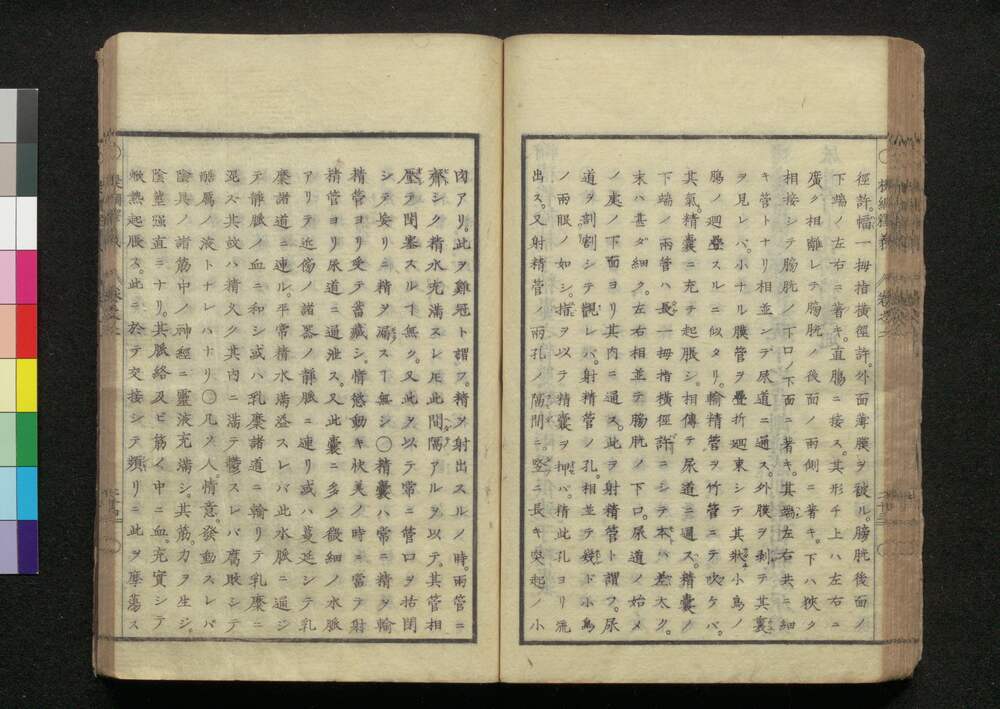 徑許。幅一拇指横徑許。外面薄膜ヲ被ル。膀胱後面ノ
下端ノ左右ニ著キ。直腸ニ接ス。其形チ上ハ左右ニ
廣ク相離レテ膀胱ノ後面ノ兩側ニ著キ。下ハ狹ク
相接シテ膀胱ノ下口ノ下面ニ著キ。其端左右共ニ細
キ管トナリ相並ンデ尿道ニ通ス。外膜ヲ剥テ其裏
ヲ見レバ。小ナル膜管ヲ疊折廻東シテ其狀小鳥ノ
腸ノ廻疊スルニ似タリ。輸精管ヲ竹管ニテ吹ケバ。
其氣精囊ニ充チ起脹シ。相傳テ尿道ニ通ス。精囊ノ
下端ノ兩管ハ長一拇指横徑許ニシテ本ハ差太ク。
末ハ甚ダ細ク。左右相並テ膀胱ノ下口。尿道ノ始メ
ノ處ノ下面ヨリ其内ニ通ス。此ヲ射精管ト謂フ。尿
道ヲ割割シテ觀レバ。射精管ノ孔。相並テ幾ド小鳥
ノ兩眼ノ如シ。指ヲ以テ精囊ヲ押バ。精此孔ヨリ流
出ス。又射精管ノ兩孔ノ隔間ニ。竪ニ長キ突起ノ小
肉アリ。此ヲ雞冠ト謂フ。精ヲ射出スルノ時。兩管ニ
齊シク精水充滿スレ𪜈此間隔アルヲ以テ。其管相
壓テ閉塞スルヿ無ク。又此ヲ以テ常ニ管口ヲ括閉
シテ妄リニ精ヲ漏スヿ無シ〇精囊ハ常ニ精ヲ輸
精管ヨリ受テ蓄藏シ。情慾動キ快美ノ時ニ當テ射
精管ヨリ尿道ニ通泄ス。又此囊ニ多ク微細ノ水脈
アリテ近傍ノ諸器ノ靜脈ニ連リ或ハ蔓延シテ乳
糜諸道ニ連ル。平常精水滿溢スレバ此水脈ニ通シ
テ靜脈ノ血ニ和シ或ハ乳糜諸道ニ輸リテ乳糜ニ
混ス其故ハ精久ク其内ニ滿テ鬱スレバ腐敗シテ
酷厲ノ液トナレバナリ〇凡ソ人。情意。發動スレバ
陰具ノ諸筋中ノ神經ニ靈液充滿シ。其筋。力ヲ生シ。
陰莖強直ニナリ。其脈絡及ビ筋ノ中ニ血。充實シテ
焮熱起脹ス。此ニ於テ交接シテ頻リニ此ヲ摩蕩ス